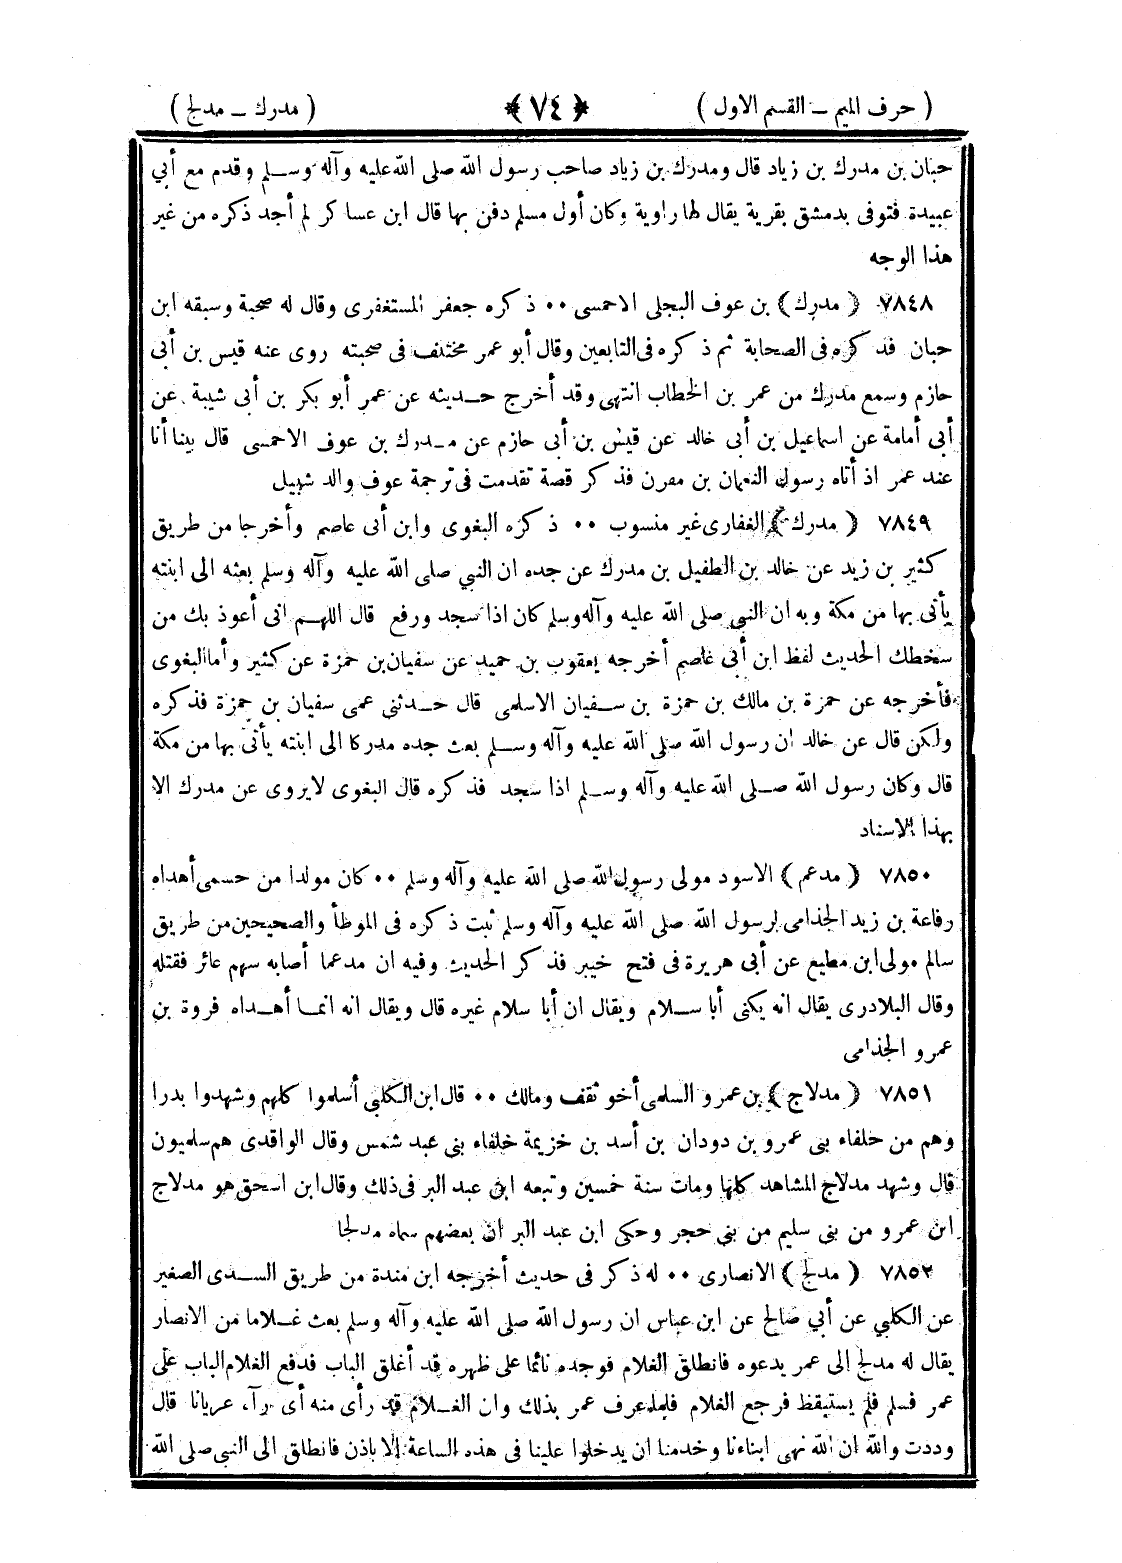 ( حرف الميم ــ القسم الاول ) ﴿ ٧٤ ﴾ ( مدرك ــ مدلج )
حبان بن مدرك بن زياد قال ومدرك بن زياد صاحب رسول الله صلى الله عليه وآله وسلم وقدم مع أبي
عبيدة فتوفى بدمشق بقرية يقال لها راوية وكان أول مسلم دفن بها قال ابن عساكر لم أجد ذكره من غير
هذا الوجه
٧٨٤٨ ( مدرك ) بن عوف البجلى الاحمسى ٠٠ ذكره جعفر المستغفرى وقال له صحبة وسبقه ابن
حبان فذكره فى الصحابة ثم ذكره فى التابعين وقال أبو عمر مختلف فى صحبته روى عنه قيس بن أبى
حازم وسمع مدرك من عمر بن الخطاب انتهى وقد أخرج حديثه عن عمر أبو بكر بن أبى شيبة عن
أبى أمامة عن اسماعيل بن أبى خالد عن قيس بن أبى حازم عن مدرك بن عوف الاحمسى قال بينا أنا
عند عمر اذ أتاه رسول النعمان بن مقرن فذكر قصة تقدمت فى ترجمة عوف والد شبيل
٧٨٤٩ ( مدرك ) الغفارى غير منسوب ٠٠ ذكره البغوى وابن أبى عاصم وأخرجا من طريق
كثير بن زيد عن خالد بن الطفيل بن مدرك عن جده ان النبي صلى الله عليه وآله وسلم بعثه الى ابنته
يأتى بها من مكة وبه ان النبى صلى الله عليه وآله وسلم كان اذا سجد ورفع قال اللهم انى أعوذ بك من
سخطك الحديث لفظ ابن أبى عاصم أخرجه يعقوب بن حميد عن سفيان بن حمزة عن كثير وأما البغوى
فأخرجه عن حمزة بن مالك بن حمزة بن سفيان الاسلمى قال حدثنى عمى سفيان بن حمزة فذكره
ولكن قال عن خالد ان رسول الله صلى الله عليه وآله وسلم بعث جده مدركا الى ابنته يأتى بها من مكة
قال وكان رسول الله صلى الله عليه وآله وسلم اذا سجد فذكره قال البغوى لا يروى عن مدرك الا
بهذا الاسناد
٧٨٥٠ ( مدعم ) الاسود مولى رسول الله صلى الله عليه وآله وسلم ٠٠ كان مولدا من حسمى أهداه
رفاعة بن زيد الجذامى لرسول الله صلى الله عليه وآله وسلم ثبت ذكره فى الموطأ والصحيحين من طريق
سالم مولى ابن مطيع عن أبى هريرة فى فتح خيبر فذكر الحديث وفيه ان مدعما أصابه سهم عائر فقتله
وقال البلاذرى يقال انه يكنى أبا سلام ويقال ان أبا سلام غيره قال ويقال انه انما أهداه فروة بن
عمرو الجذامى
٧٨٥١ ( مدلاج ) بن عمرو السلمى أخو ثقف ومالك ٠٠ قال ابن الكلبى أسلموا كلهم وشهدوا بدرا
وهم من حلفاء بنى عمرو بن دودان بن أسد بن خزيمة حلفاء بنى عبد شمس وقال الواقدى هم سلميون
قال وشهد مدلاج المشاهد كلها ومات سنة خمسين وتبعه ابن عبد البر فى ذلك وقال ابن اسحق هو مدلاج
ابن عمرو من بنى سليم من بني حجر وحكى ابن عبد البر ان بعضهم سماه مدلجا
٧٨٥٢ ( مدلج ) الانصارى ٠٠ له ذكر فى حديث أخرجه ابن مندة من طريق السدى الصغير
عن الكلبي عن أبي صالح عن ابن عباس ان رسول الله صلى الله عليه وآله وسلم بعث غلاما من الانصار
يقال له مدلج إلى عمر يدعوه فانطلق الغلام فوجده نائما على ظهره قد أغلق الباب فدفع الغلام الباب على
عمر فسلم فلم يستيقظ فرجع الغلام فلما عرف عمر بذلك وان الغلام قد رأى منه أى رآه عريانا قال
وددت والله ان الله نهى ابناءنا وخدمنا ان يدخلوا علينا فى هذه الساعة الا باذن فانطلق الى النبي صلى الله